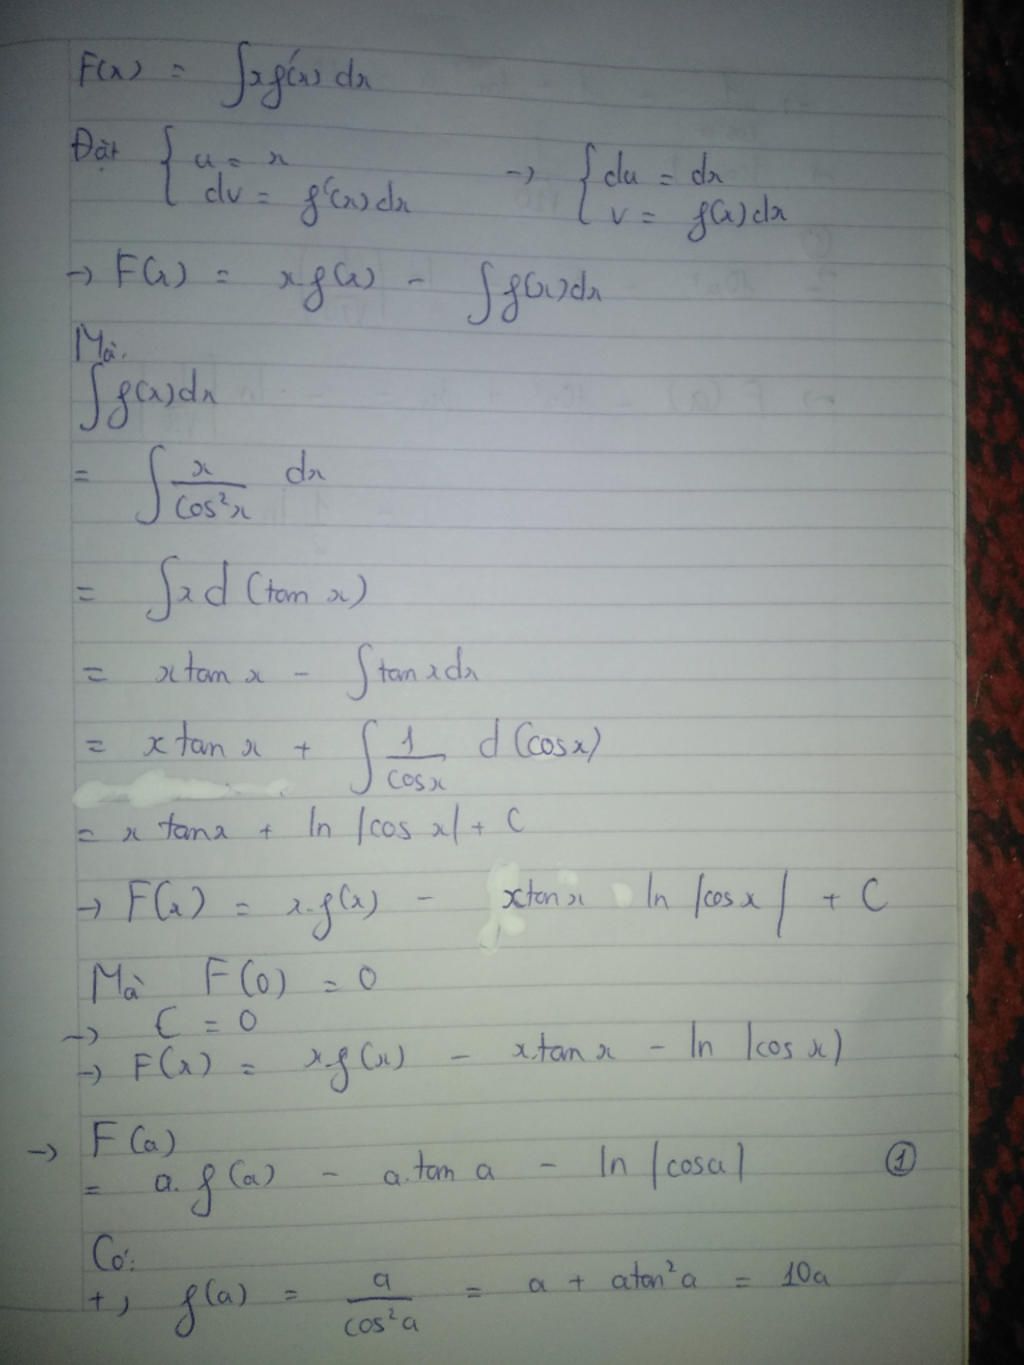 F(x) = ∫xf'(x) dx
Đặt { u = x → { du = dx
dv = f'(x)dx v = f(x)dx
→ F(x) = xf(x) - ∫f(x)dx
Mà:
∫f(x)dx
= ∫ x/cos²x dx
= ∫x d (tan x)
= x tan x - ∫tan x dx
= x tan x + ∫ 1/cosx d (cosx)
= x tanx + ln |cos x| + C
→ F(x) = x.f(x) - xtanx ln |cosx| + C
Mà F(0) = 0
→ C = 0
→ F(x) = xf(x) - x.tan x - ln |cos x)
→ F(a)
= a. f(a) - a.tan a - ln |cosa| ①
Có:
+, f(a) = a/cos²a = a + atan²a = 10a